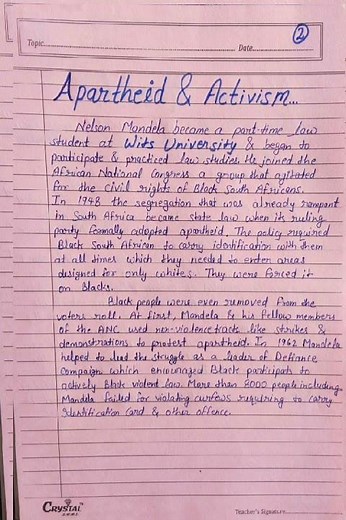 2
Topic Date
Apartheid & Activism...
Nelson Mandela became a part-time law
student at Wits University & began to
participate & practiced law studies He joined the
African National Congress a group that agitated
for the civil rights of Black South Africans.
In 1948 the segregation that was already rampant
in South Africa became state law when its ruling
party formally adopted apartheid. The policy required
Black South African to carry identification with them
at all times which they needed to enter areas
designed for only whites. They were forced it
on Blacks.
Black people were even removed from the
voters roll. At first, Mandela & his fellow members
of the ANC used non-violence tack like strikes &
demonstrations to protest apartheid. In 1962 Mandela
helped to lead the struggle as a leader of Defiance
Campaign which encouraged Black participate to
actively Black violent law. More than 8000 people including
Mandela failed for violating curfows requiring to carry
Identification card & other offence.
CRYSTAL
Teacher's Signature